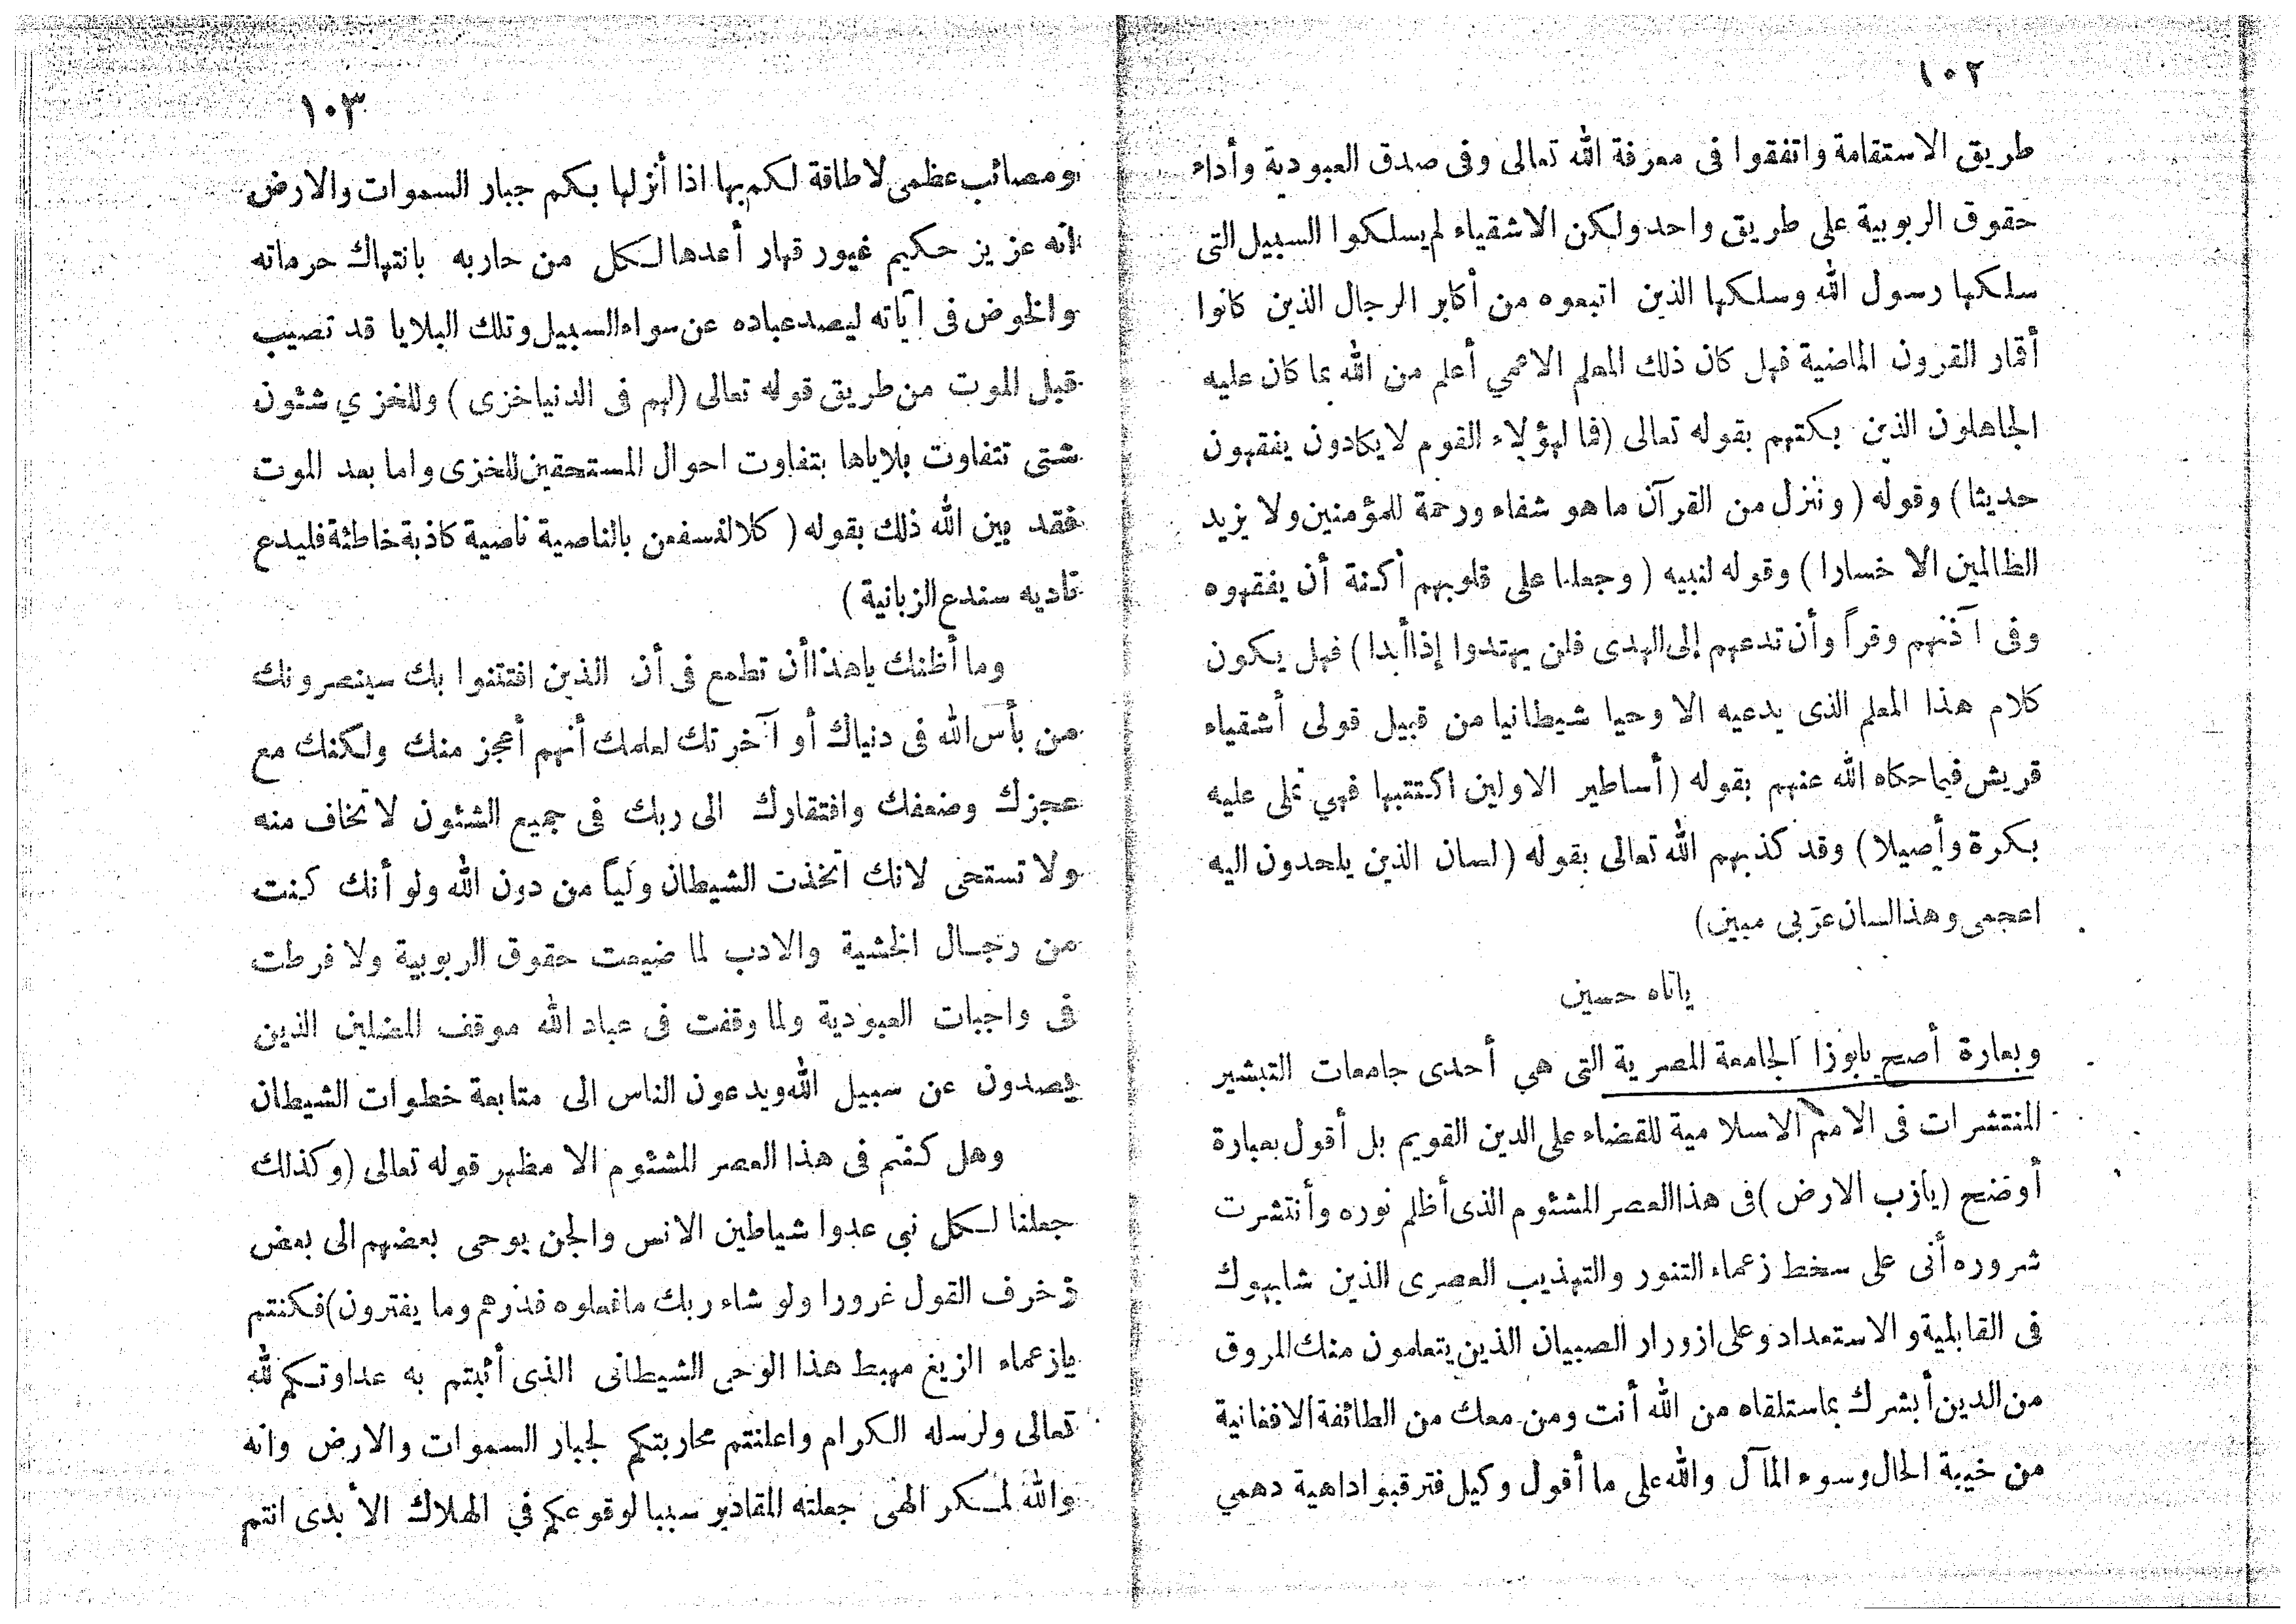 ١٠٢
طريق الاستقامة واتفقوا فى معرفة الله تعالى وفى صدق العبودية وأداء
حقوق الربوبية على طريق واحد ولكن الاشقياء لم يسلكوا السبيل التى
سلكها رسول الله وسلكها الذين اتبعوه من أكابر الرجال الذين كانوا
أقمار القرون الماضية فهل كان ذلك المعلم الاعمي أعلم من الله بما كان عليه
الجاهلون الذين بكتهم بقوله تعالى (فما لهؤلاء القوم لا يكادون يفقهون
حديثا) وقوله (وننزل من القرآن ما هو شفاء ورحمة للمؤمنين ولا يزيد
الظالمين الا خسارا) وقوله لنبيه (وجعلنا على قلوبهم أكنة أن يفقهوه
وفى آذنهم وقراً وأن تدعهم إلى الهدى فلن يهتدوا إذا أبدا) فهل يكون
كلام هذا المعلم الذى يدعيه الا وحيا شيطانيا من قبيل قولى أشقياء
قريش فيما حكاه الله عنهم بقوله (أساطير الاولين اكتتبها فهي تملى عليه
بكرة وأصيلا) وقد كذبهم الله تعالى بقوله (لسان الذين يلحدون اليه
اعجمى وهذا لسان عربى مبين)
ياتاه حسين
وبعارة أصح يابوزا الجامعة المصرية التى هي أحدى جامعات التبشير
المنتشرات فى الامم الاسلامية للقضاء على الدين القويم بل أقول بعبارة
أوضح (يازب الارض) فى هذا العصر المشئوم الذى أظلم نوره وأنتشرت
شروره أنى على سخط زعماء التنور والتهذيب العصرى الذين شابهوك
فى القابلية والاستعداد وعلى ازورار الصبيان الذين يتعلمون منك المروق
من الدين أبشرك بما ستلقاه من الله أنت ومن معك من الطائفة الافغانية
من خيبة الحال وسوء المآل والله على ما أقول وكيل فترقبوا داهية دهمي
١٠٣
ومصائب عظمى لا طاقة لكم بها اذا أنزلها بكم جبار السموات والارض
انه عزيز حكيم غيور قهار أعدها لكل من حاربه بانتهاك حرماته
والخوض فى آياته ليصد عباده عن سواء السبيل وتلك البلايا قد تصيب
قبل الموت من طريق قوله تعالى (لهم فى الدنيا خزى) وللخزي شئون
شتى تتفاوت بلاياها بتفاوت احوال المستحقين للخزى واما بعد الموت
فقد بين الله ذلك بقوله (كلا لنسفعن بالناصية ناصية كاذبة خاطئة فليدع
ناديه سندع الزبانية)
وما أظنك ياهذا أن تطمع فى أن الذين افتتنوا بك سينصرونك
من بأس الله فى دنياك أو آخرتك لعلمك أنهم أعجز منك ولكنك مع
عجزك وضعفك وافتقارك الى ربك فى جميع الشئون لا تخاف منه
ولا تستحى لانك اتخذت الشيطان ولياً من دون الله ولو أنك كنت
من رجال الخشية والادب لما ضيعت حقوق الربوبية ولا فرطت
فى واجبات العبودية ولما وقفت فى عباد الله موقف المضلين الذين
يصدون عن سبيل الله ويدعون الناس الى متابعة خطوات الشيطان
وهل كنتم فى هذا العصر المشئوم الا مظهر قوله تعالى (وكذلك
جعلنا لكل نبى عدوا شياطين الانس والجن يوحى بعضهم الى بعض
زخرف القول غرورا ولو شاء ربك ما فعلوه فذرهم وما يفترون) فكنتم
يازعماء الزيغ مهبط هذا الوحي الشيطانى الذى أثبتم به عداوتكم لله
تعالى ولرسله الكرام واعلنتم محاربتكم لجبار السموات والارض وانه
والله لمكر الهى جعلته المقادير سببا لوقوعكم في الهلاك الأبدى انتم